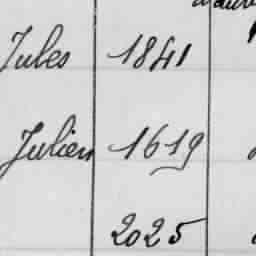 Jules 1841
Julien 1619
2025